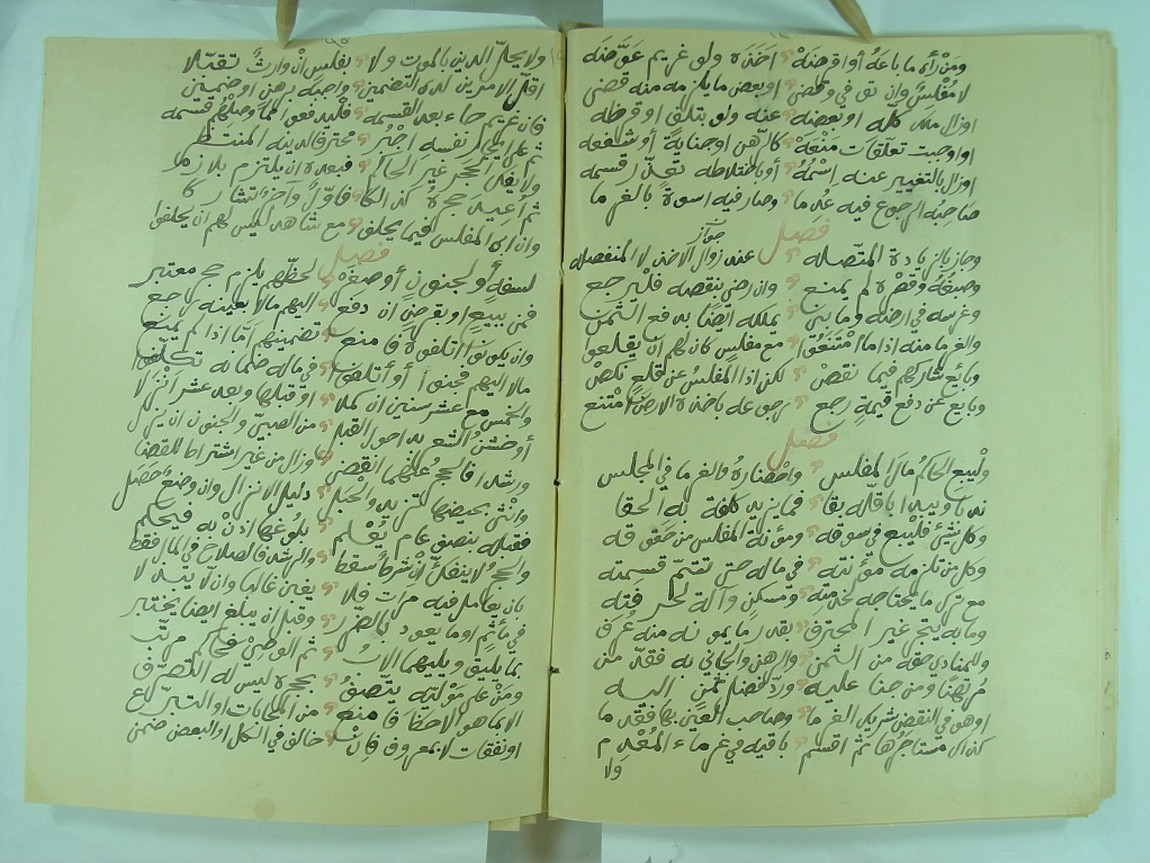 ومن رأى ما باعه أو أقرضه أخذه ولو غريم عوضه
لا مفلس وإن بقي وقضى او بعض ما يلزمه منه قضى
اوزال ملك كله او بعضه عنه ولو بتلف او قرظه
او اوجبت تعلقات منعه كالرهن او جناية أو شفعه
اوزال بالتغيير عنه اسمه أو باختلاطه تعذر قسمه
صاحبه الرجوع فيه عدما وصار فيه اسوة بالغرما
فصل جواز
وحاز بالزيادة المتصله عند زوال الاخذ لا المنفصله
وصبغه وقصره لم يمنع وان رضي بنقصه فليرجع
وغرسه في ارضه وما بنى يملكه ايضا بدفع الثمن
والغرما منه اذا ما امتنعوا مع مفلس كان لهم ان يقلعوا
وبائع شاركهم فيما نقص لكن اذا المفلس عن قلع نكص
وبايع عن دفع قيمة رجع رجوعه باخذه الارض امتنع
فصل
وليبع الحاكم مال المفلس واحضاره والغرما في المجلس
ندبا ويبدا باقله بقا فما يزيد كلفة به الحقا
وكل شيئ فليبع في سوقه ومؤنة المفلس من حقوقه
وكل من تلزمه مؤنته في ماله حتى تتم قسمته
مع ترك ما يحتاجه لخدمته ومسكن وآلة لحرفته
وما به يتجر غير المحترف بقدر ما يمونه منه عرف
وللمنادي حقه من الثمن والرهن والجاني به فقدمن
مرتهنا ومن جنا عليه ورد فضل ثمن اليه
اوهو في النقص شريك الغرما وصاحب العين بها فقدما
كذاك مستاجرها ثم اقسم باقيه في غرماء المعدم
ولا
ولا يحل الدين بالموت ولا بفلس ان وارث تقبلا
اقل الامرين لدى التضمين واجبه برهن او ضمين
فان غريم جاء بعد القسمه فليدفعوا لما وصلهم قسمه
ثم على ايجار نفسه اجبر محترفا لدينه المنتظر
ولا يفك الحجر غير الحاكم فبعده ان يلتزم بلازم
ثم أعيد حجره كذلكا فاول وآخر تشاركا
وان ابى المفلس فيما يحلف مع شاهد ليس لهم ان يحلفوا
فصل
لسفه أو لجنون أو صغر لحظهم يلزم حجر معتبر
فمن ببيع او بقرض ان دفع اليهم مالا بعينه رجع
وان يكونوا اتلفوه فامنع تضمينهم اما اذا لم يمنع
مالا اليهم مجنوا أو أتلفوا في ماله ضمانه تكلفوا
والخمس مع عشر سنين ان كملا او قبلها وبعد عشر انزلا
أو خشن الشعر بدا حول القبل من الصبي والجنون ان يزل
ورشدا فالحجر عنهما انقضى وزال من غير اشتراط للقضا
وانثى بحيضها تزيد والحبل دليل الانزال وان وضع حصل
فقبله بنصف عام يعلم بلوغها اذن به فيحكم
والحجر لا ينفك ان شرط سقط والرشد فالصلاح في المال فقط
بان يعامل فيه مرات فلا يغبن غالبا وان لا يبذلا
في مأثم او ما يعود بالضرر وقبل ان يبلغ ايضا يختبر
بما يليق ويليهما الاب ثم الوصي فحاكم مرتب
ومن على موليه يتصف بحجره ليس له التصرف
الا بما هو الاحظ فامنع من المحابات او التبرع
او نفقات لا بمعروف فان خالف في الكل او البعض ضمن